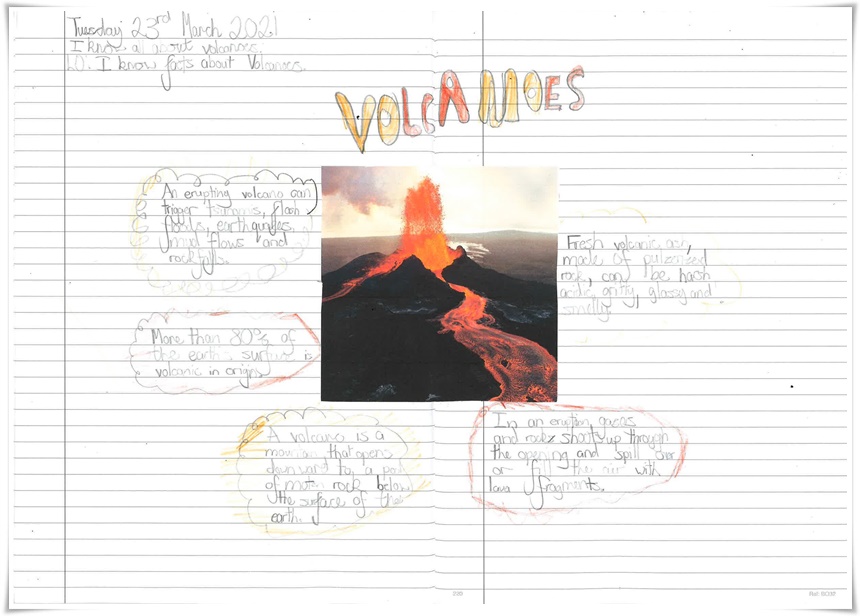 Tuesday 23rd March 2021
I know all about volcanoes.
LO: I know facts about Volcanoes.
VOLCANOES
An erupting volcano can
trigger tsunamis, flash
floods, earthquakes,
mud flows and
rockfalls.
Fresh volcanic ash,
made of pulverized
rock, can be harsh
acidic gritty, glassy and
smelly.
More than 80% of
the earth surface is
volcanic in origin
A volcano is a
mountain that opens
downward to a pool
of molten rock below
the surface of the
earth.
In an eruption gases
and rock shoots up through
the opening and spill over
or fill the air with
lava fragments.